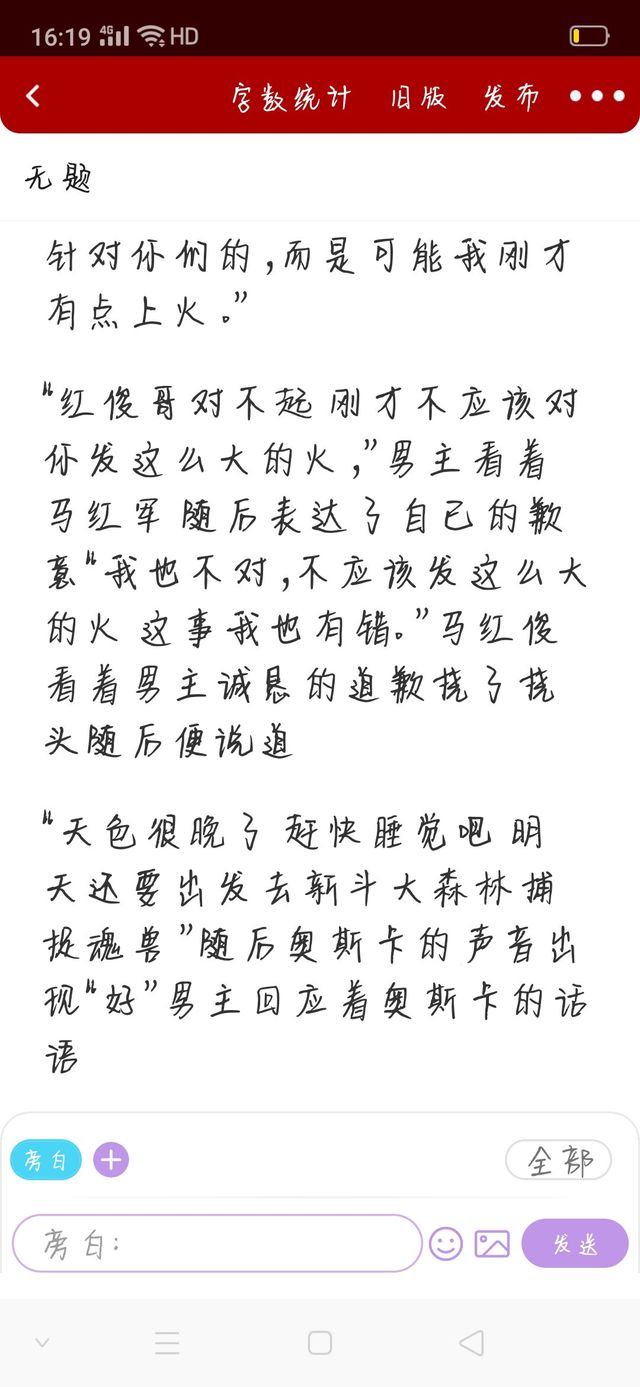 16:19 4G HD
字数统计 旧版 发布
无题
针对你们的,而是可能我刚才
有点上火。”
“红俊哥对不起 刚才不应该对
你发这么大的火,”男主看着
马红军 随后表达了自己的歉
意“我也不对,不应该发这么大
的火 这事我也有错。”马红俊
看着男主诚恳的道歉挠了挠
头随后便说道
“天色很晚了 赶快睡觉吧 明
天还要出发去新斗大森林捕
捉魂兽”随后奥斯卡的声音出
现“好”男主回应着奥斯卡的话
语
旁白
全部
旁白:
发送